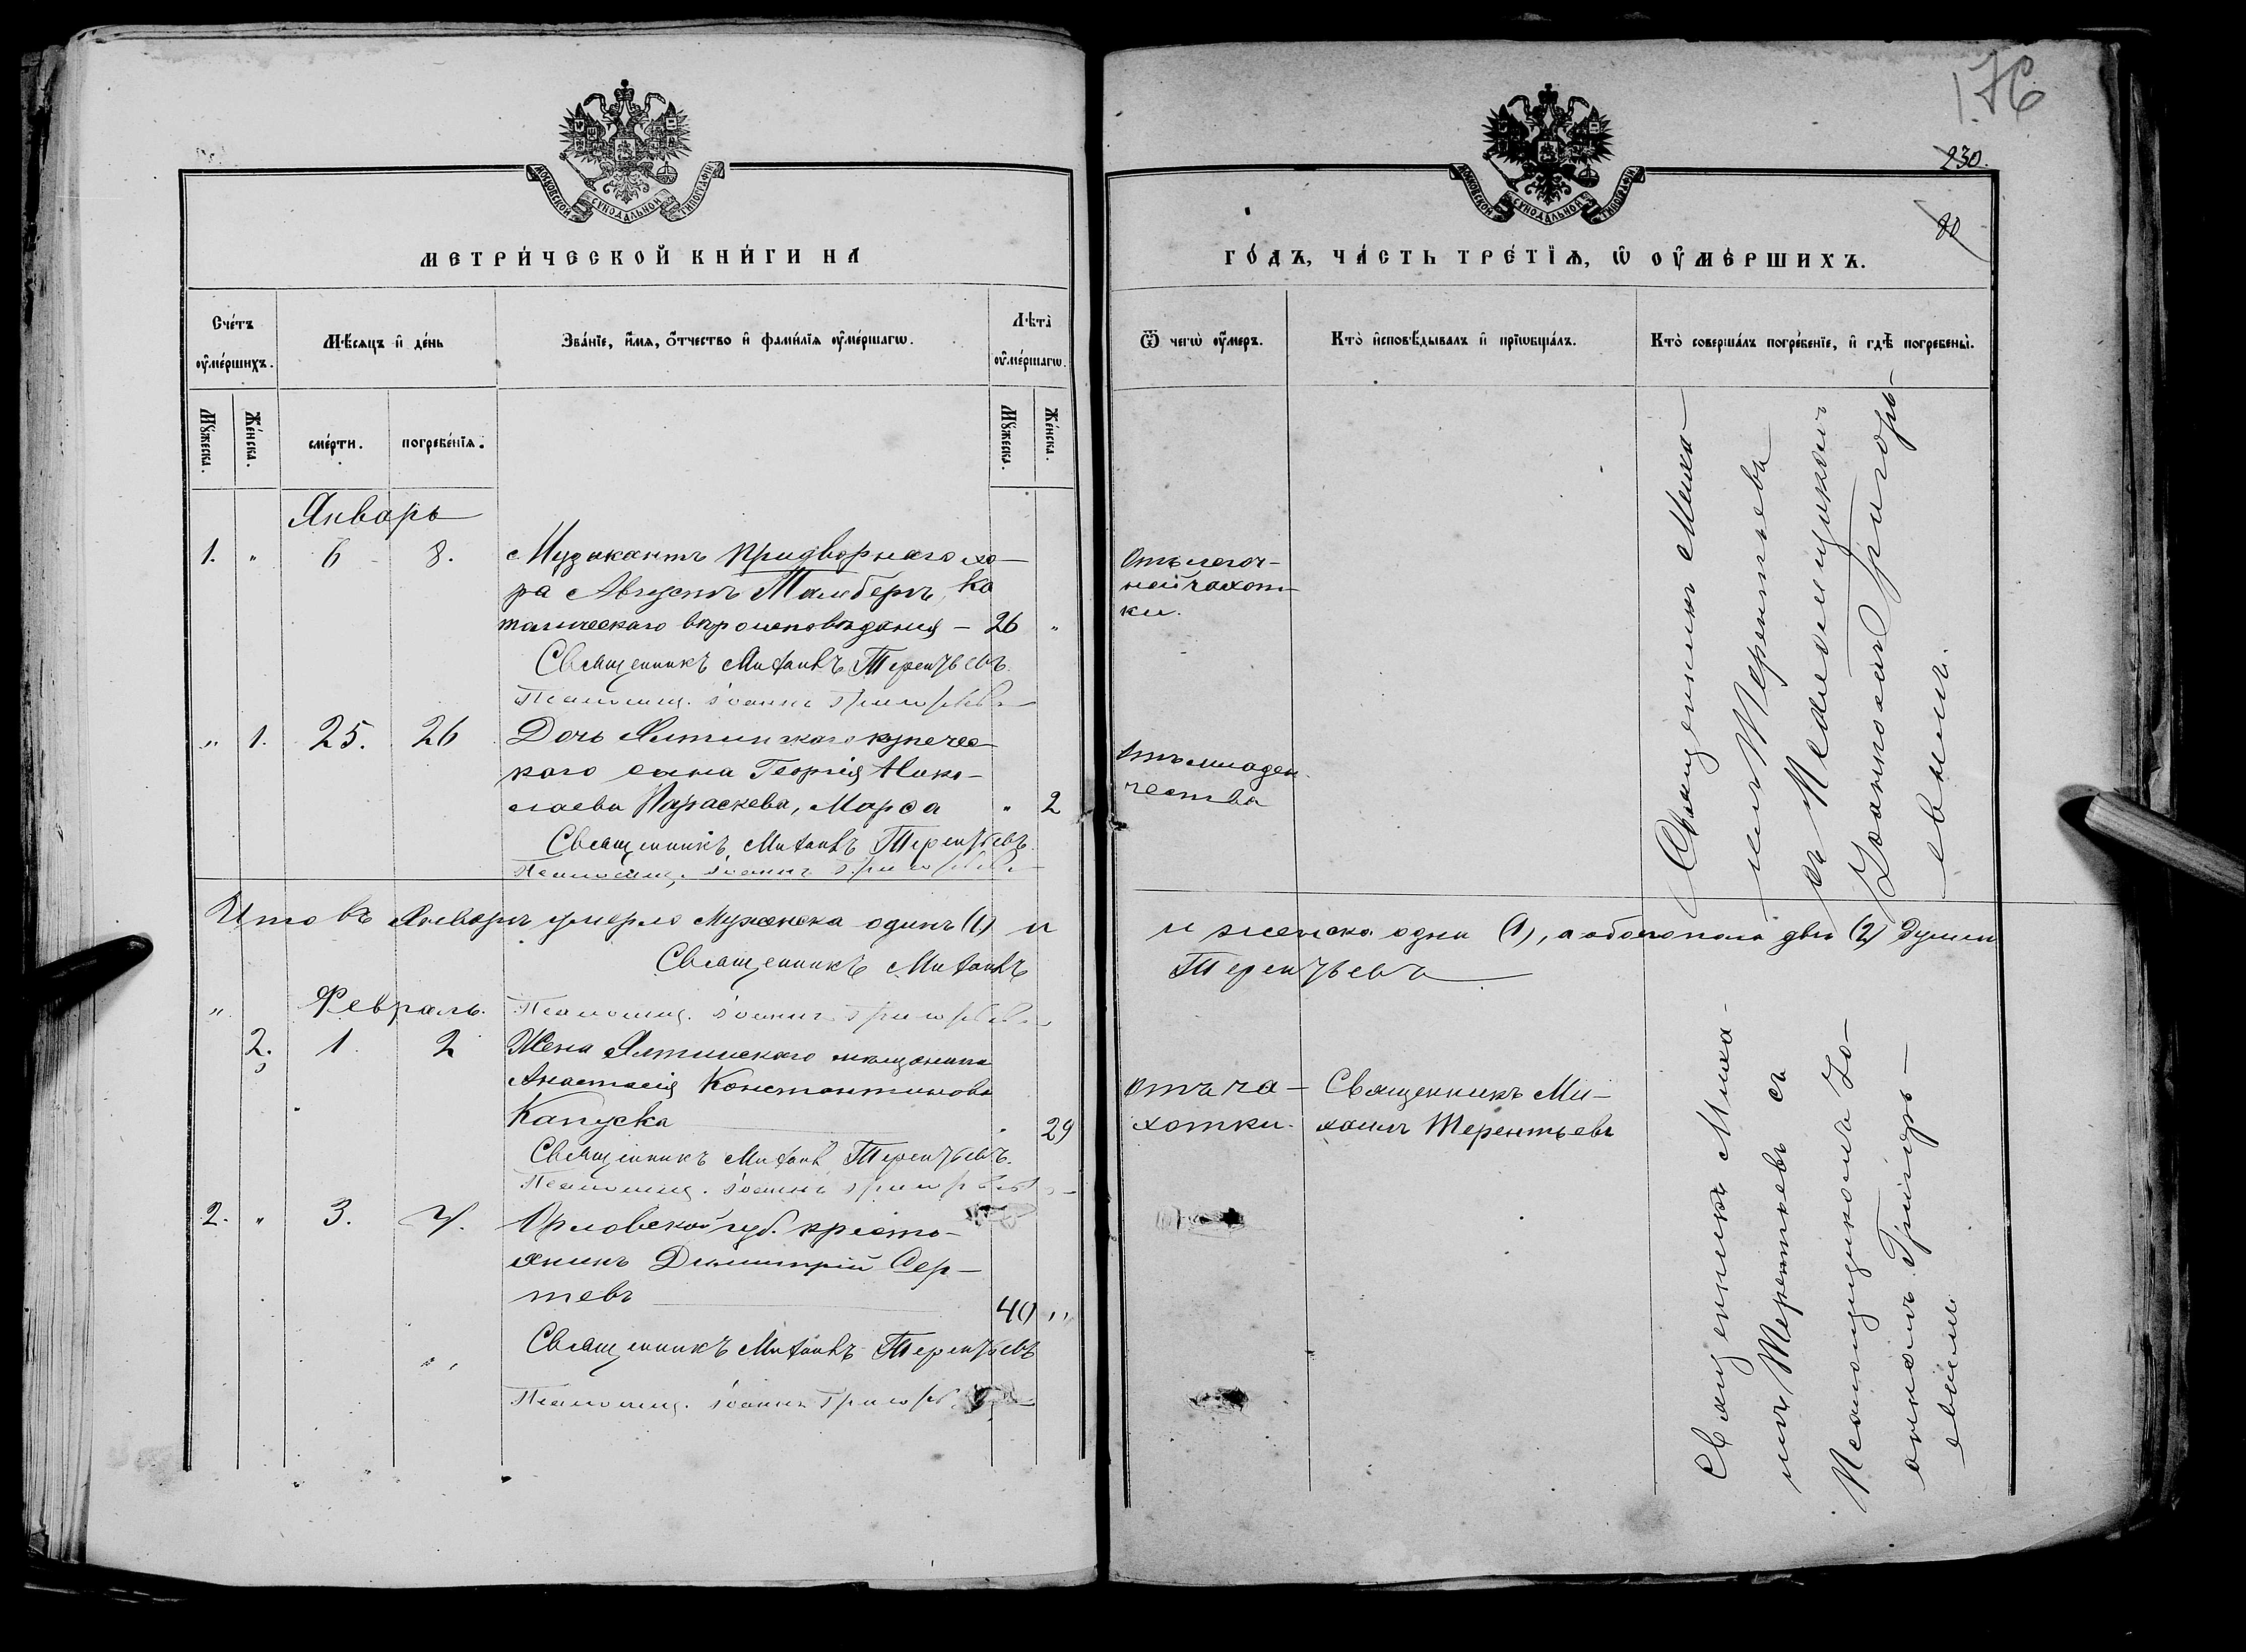 176
230.
80
МОСКОВСКОЙ СѴНОДАЛЬНОЙ ТИПОГРАФІИ
МЕТРИ́ЧЕСКОЙ КНИ́ГИ НА
Сче́тъ ᲂу҆ме́ршихъ.
Мѣ́сяцъ и҆ де́нь
Зва́нїе, и҆́мѧ, ѻ҆́тчество и҆ фами́лїѧ ᲂу҆ме́ршагѡ.
Лѣта̀ ᲂу҆ме́ршагѡ.
Мꙋ́жеска.
Же́нска.
сме́рти.
погребе́нїѧ.
Мꙋ́жеска.
Же́нска.
Январь
1. " 6 8. Музыкантъ придворнаго хо-
ра Августъ Тамберъ, ка
толическаго вѣроисповѣданія – 26 "
Священникъ Михаилъ Терентьевъ.
Псаломщ. Іоаннъ Григорьевъ
" 1. 25. 26 Дочь Ялтинскаго купечес
каго сына Георгія Нико-
лаева Параскева, Марѳа " 2
Священникъ Михаилъ Терентьевъ.
Псаломщ. Іоаннъ Григорьевъ
Итого въ Январѣ умерло Мужеска одинъ (1) и
Священникъ Михаилъ
" Февраль. Псаломщ. Іоаннъ Григорьевъ
2. 1. 2 Жена Ялтинскаго мѣщанина
Анастасія Константинова
Капуска 29
Священникъ Михаилъ Терентьевъ.
Псаломщ. Іоаннъ Григорьевъ
2. " 3. Орловской губ. кресть-
янинъ Димитрій Сер-
теевъ 40 "
Священникъ Михаилъ Терентьевъ
Псаломщ. Іоаннъ Григорьевъ
МОСКОВСКОЙ СѴНОДАЛЬНОЙ ТИПОГРАФІИ
ГО́ДЪ, ЧА́СТЬ ТРЕ́ТЇѦ, Ѡ҆ ОУ҆МЕ́РШИХЪ.
Ѿ чегѡ̀ ᲂу҆́меръ.
Кто̀ и҆сповѣ́дывалъ и҆ прїѡбща́лъ.
Кто̀ соверша́лъ погребе́нїе, и҆ гдѣ̀ погребены̀.
Отъ легоч-
ной чахот-
ки.
Отъ младен
чества
Священникъ Миха-
илъ Терентьевъ
съ Псаломщикомъ
Іоанномъ Григорь-
евымъ.
и женска одна (1), а обоего пола двѣ (2) души
Терентьевъ
Отъ ча-
хотки.
Священникъ Ми-
хаилъ Терентьевъ
Священникъ Миха-
илъ Терентьевъ съ
Псаломщикомъ Іо-
анномъ Григорь-
евымъ.